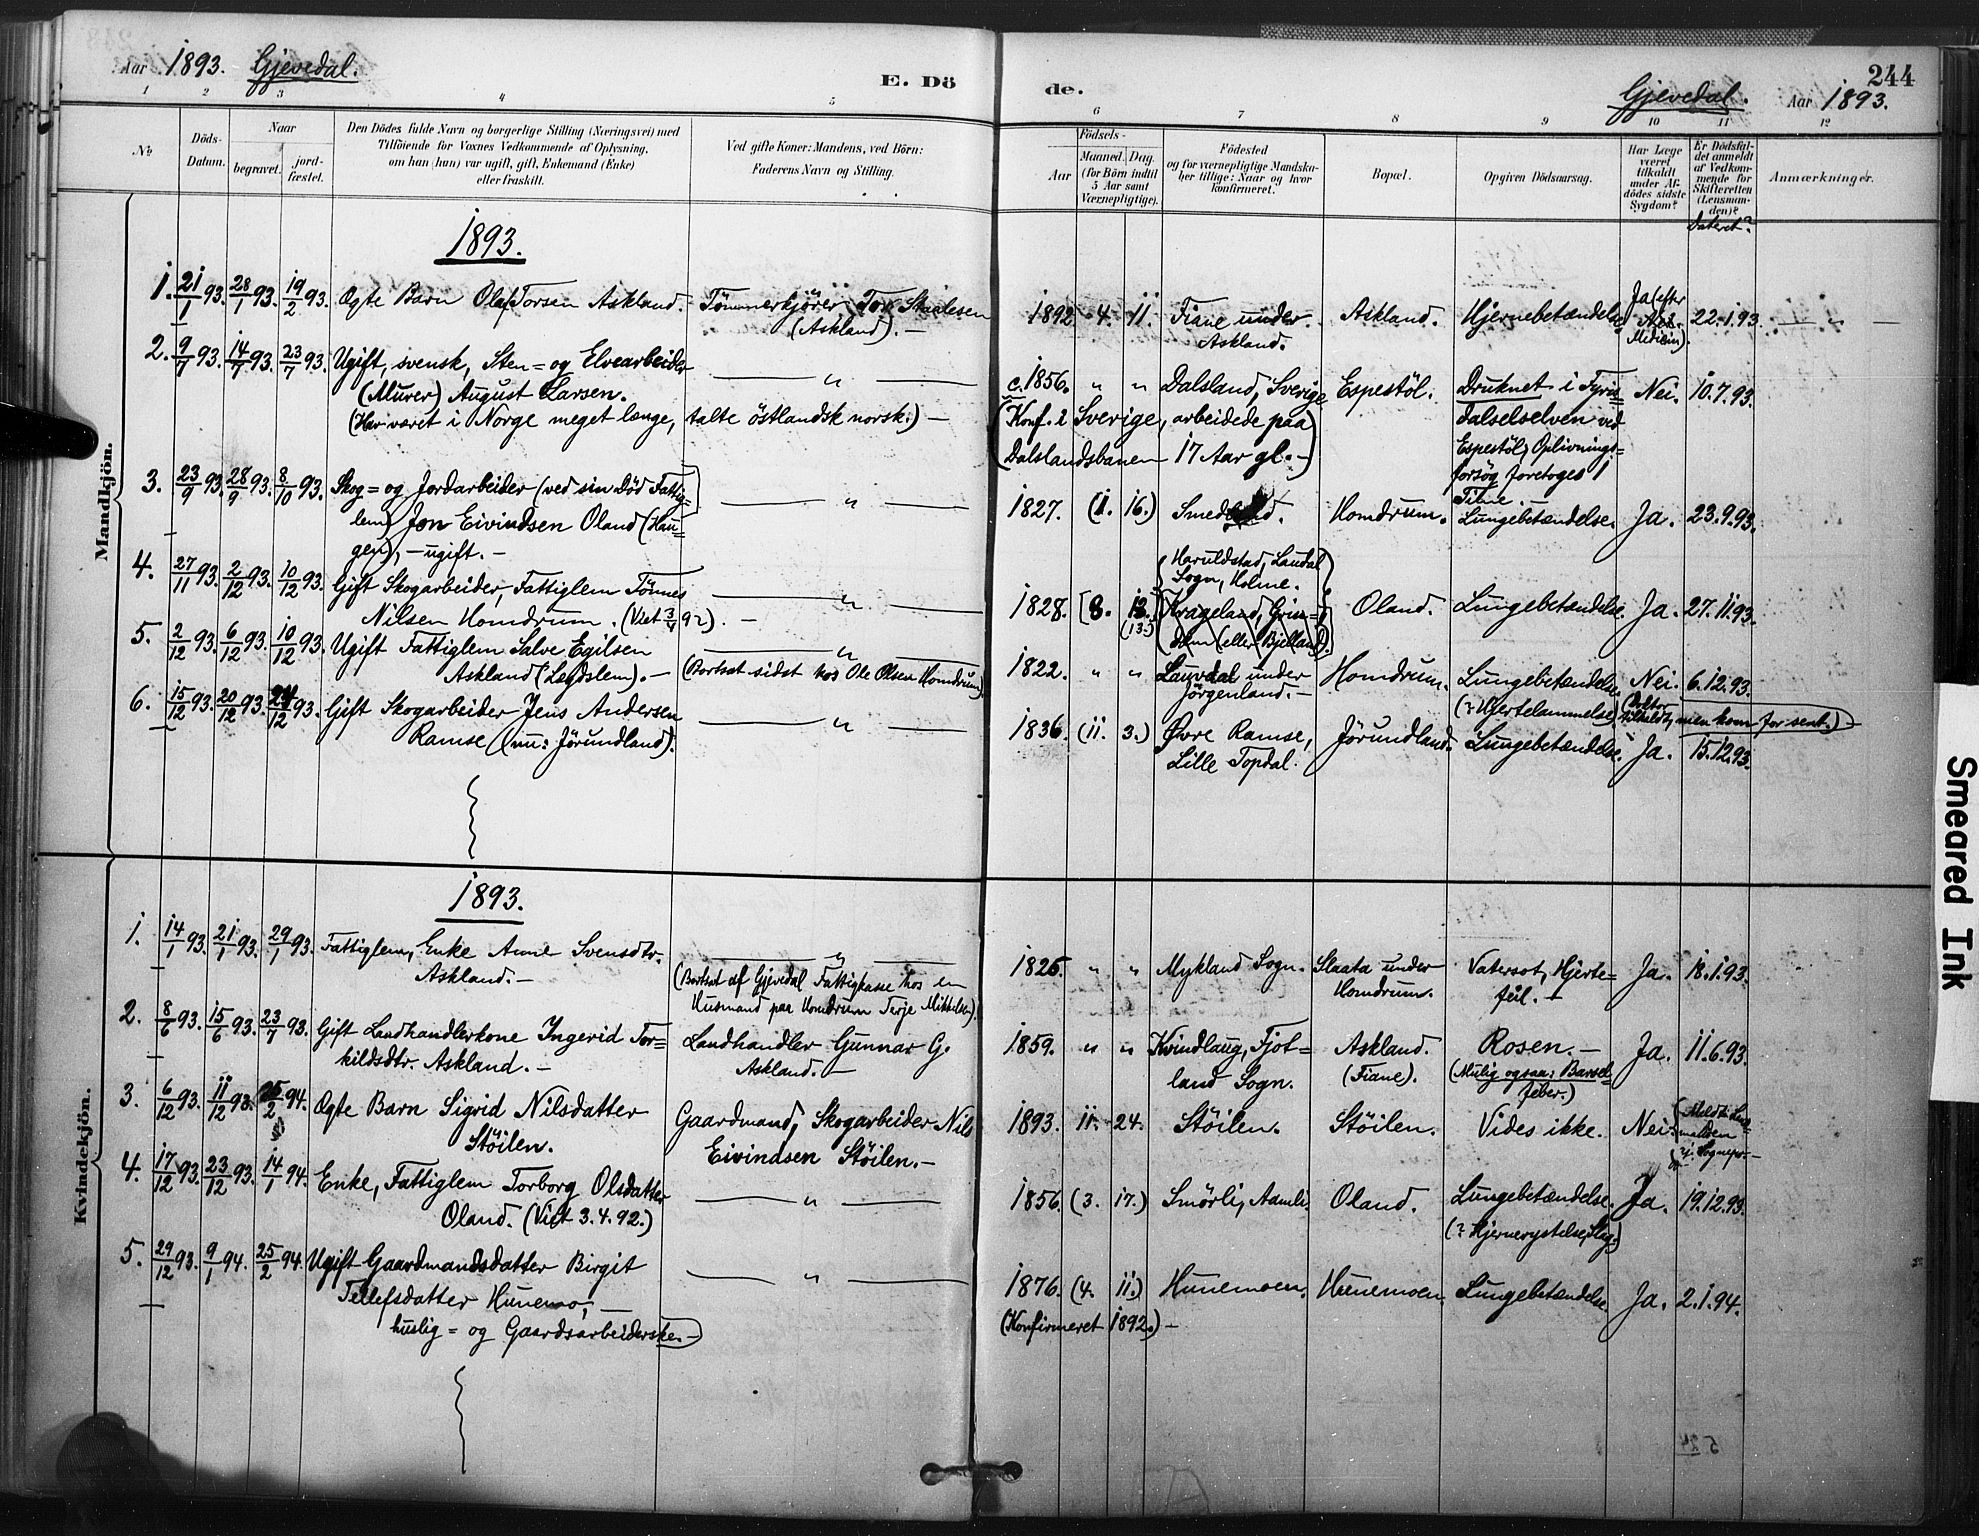 Aar 1893. Gjevedal.
E. Dö
de.
Gjevedal. Aar 1893.
244
1 2 3 4 5 6 7 8 9 10 11 12
No
Döds-
Datum.
Naar
begravet.
jord-
fæstet.
Den Dödes fulde Navn og borgerlige Stilling (Næringsvei) med
Tilföiende for Voxnes Vedkommende af Oplysning,
om han (hun) var ugift, gift, Enkemand (Enke)
eller fraskilt.
Ved gifte Koner: Mandens, ved Börn:
Faderens Navn og Stilling.
Födsels-
Aar
Maaned. Dag.
(for Börn indtil
5 Aar samt
Værnepligtige).
Födested
og for værnepligtige Mandska-
ber tillige: Naar og hvor
konfirmeret.
Bopæl.
Opgiven Dödsaarsag.
Har Læge
været
tilkaldt
under Af-
dödes sidste
Sygdom?
Er Dödsfal-
det anmeldt
af Vedkom-
mende for
Skifteretten
(Lensman-
den)?
Dateret?
Anmærkninger.
Mandkjön.
1893.
1. 21/1 93. 28/1 93. 19/2 93. Ægte Barn Olaf Torsen Askland. Tömmerkjörer Tor Staalesen
(Askland). —
1892 4. 11. Fiane under
Askland.
Askland. Hjernebetændelse Ja (efter
Medicin). 22.1.93.
2. 9/7 93. 14/7 93. 23/7 93. Ugift, svensk, Sten= og Elvearbeider
(Murer) August Larsen.
(Har været i Norge meget længe, talte östlandsk norsk.) —
c. 1856. " " Dalsland, Sverige Espestöl. Druknet i Fyris-
dalselselven ved
Espestöl, Oplivnings-
forsög foretoges 1
Time.
Nei. 10.7.93.
(Konf. i Sverige, arbeidede paa
Dalslandsbanen 17 Aar gl. —)
3. 23/9 93. 28/9 93. 8/10 93. Skog= og Jordarbeider (ved sin Död Fattig=
lem) Jon Eivindsen Oland (Hau=
gen), — ugift. —
1827. (1. 16.) Homdrum. Lungebetændelse. Ja. 23.9.93.
4. 27/11 93. 2/12 93. 10/12 93. Gift Skogarbeider, Fattiglem Tönnes
Nilsen Homdrum. (Viet 3/4 92). —
1828. 12. (13.) Haruldstad, Laudal
Sogn, Holme.
Krageland, Grin=
dem (eller Bjelland).
Oland. Lungebetændelse. Ja. 27.11.93.
5. 2/12 93. 6/12 93. 10/12 93. Ugift Fattiglem Salve Egilsen
Askland (Legdslem). — (Bortsat sidst hos Ole Olsen Homdrum)
1822. " " Lauvdal under
Jörgenland. —
Homdrum. Lungebetændelse
(? Hjertelammelse)
Nei. 6.12.93.
(Doktor
tilkaldt, men kom for sent.) —
6. 15/12 93. 20/12 93. 24/12 93. Gift Skogarbeider Jens Andersen
Ramse (nu: Jörundland).
1836. (11. 3.) Øvre Ramse,
Lille Topdal.
Jörundland. Lungebetændelse. Ja. 15.12.93.
Kvindekjön.
1893.
1. 14/1 93. 21/1 93. 29/1 93. Fattiglem, Enke Anne Svensdtr.
Askland. —
(Bortsat af Gjevedal Fattigkasse hos en
Husmand paa Homdrum Terje Mikkelsen).
1825 " " Mykland Sogn. Slaata under
Homdrum.
Vatersot, Hjerte=
feil. —
Ja. 18.1.93.
2. 8/6 93. 15/6 93. 23/7 93. Gift Landhandlerkone Ingerid Tor=
kildsdtr. Askland. —
Landhandler Gunnar G.
Askland. —
1859. " " Kvindlaug, Fjot=
land Sogn.
Askland.
(Fiane).
Rosen. —
(Mulig ogsaa: Barsel=
feber.)
Ja. 11.6.93.
3. 6/12 93. 11/12 93. 25/2 94. Ægte Barn Sigrid Nilsdatter
Stöilen.
Gaardmand, Skogarbeider Nils
Eivindsen Stöilen. —
1893. 11. 24. Stöilen. Stöilen. Vides ikke. Nei.
4. 17/12 93. 23/12 93. 14/1 94. Enke, Fattiglem Torborg Olsdatter
Oland. (Viet 3.4.92.)
1856. (3. 17.) Smörli, Aamli. Oland. Lungebetændelse.
(? Hjernerystelse, Slag.)
Ja. 19.12.93.
5. 29/12 93. 9/1 94. 25/2 94. Ugift Gaardmandsdatter Birgit
Tellefsdatter Hunemo, —
huslig= og Gaardsarbeiderske. —
1876. (4. 11.) Hunemoen. Hunemoen. Lungebetændelse. Ja. 2.1.94.
(Konfirmeret 1892.) —
Smeared Ink